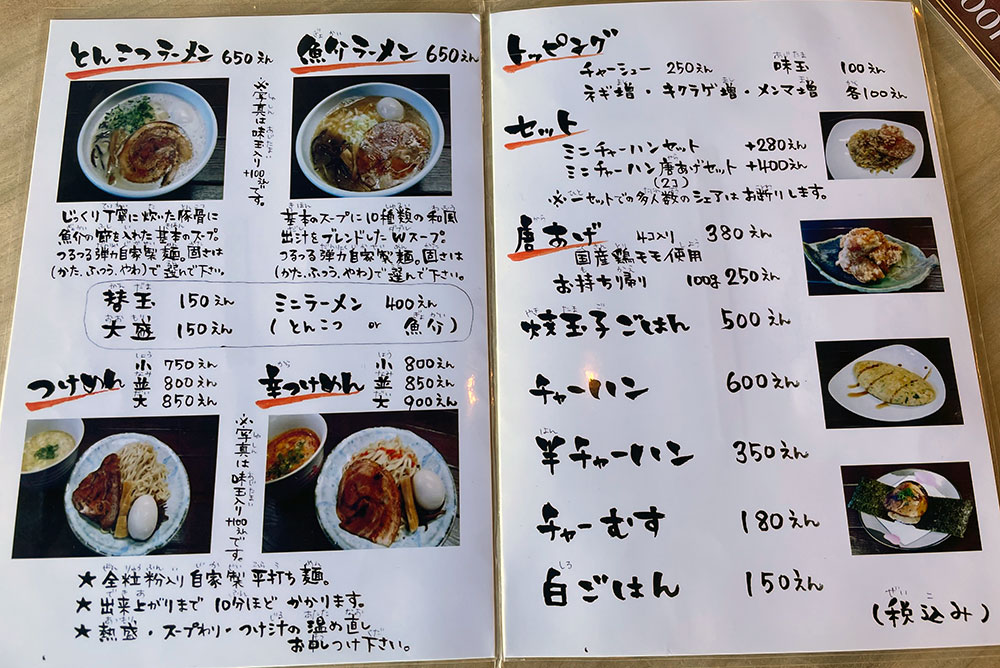 とんこつラーメン 650えん
魚介ラーメン 650えん
※写真は味玉入り+100えんです。
じっくり丁寧に炊いた豚骨に
魚介の節を入れた基本のスープ。
つるつる弾力自家製麺。固さは
(かた、ふつう、やわ)で選んで下さい。
基本のスープに10種類の和風
出汁をブレンドしたWスープ。
つるつる弾力自家製麺。固さは
(かた、ふつう、やわ)で選んで下さい。
替玉 150えん
大盛 150えん
ミニラーメン 400えん
(とんこつ or 魚介)
つけめん
小 750えん
並 800えん
大 850えん
辛つけめん
小 800えん
並 850えん
大 900えん
※写真は味玉入り+100えんです。
★全粒粉入り自家製平打ち麺。
★出来上がりまで10分ほどかかります。
★熱盛・スープわり・つけ汁の温め直し
お申しつけ下さい。
トッピング
チャーシュー 250えん 味玉 100えん
ネギ増・キクラゲ増・メンマ増 各100えん
セット
ミニチャーハンセット +280えん
ミニチャーハン唐あげセット +400えん
(2コ)
※一セットでの多人数のシェアはお断りします。
唐あげ 4コ入り 380えん
国産鶏モモ使用
お持ち帰り 100g 250えん
焼玉子ごはん 500えん
チャーハン 600えん
半チャーハン 350えん
チャーむす 180えん
白ごはん 150えん
(税込み)